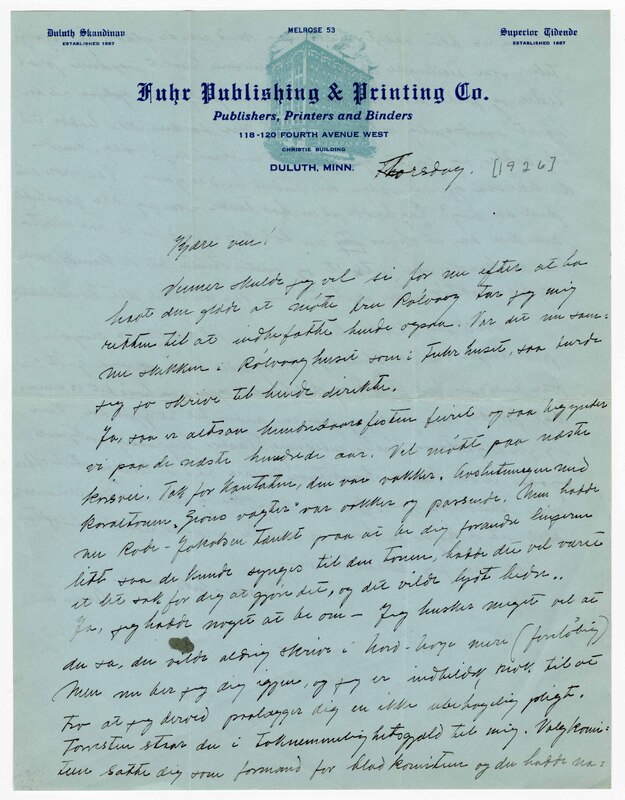 Duluth Skandinav
ESTABLISHED 1887
MELROSE 53
Superior Tidende
ESTABLISHED 1887
Fuhr Publishing & Printing Co.
Publishers, Printers and Binders
118-120 FOURTH AVENUE WEST
CHRISTIE BUILDING
DULUTH, MINN.
Thorsday. [1926]
Kjære ven!
Venner skulde jeg vel si for nu efter at ha
havt den glæde at møte fru Rölvaag tar jeg mig
retten til at indbefatte hende ogsaa. Var det nu sam-
me skikken i Rölvaaghuset som i Fuhrhuset, saa burde
jeg jo skrive til hende direkte.
Ja, saa er altsaa hundredaarsfesten feiret og saa begynder
vi paa de næste hundrede aar. Vel møtt paa næste
korsvei. Tak for kantaten, den var vakker. Avslutningen med
koraltonen „Zions vægter" var vakker og passende. Men hadde
nu Rode-Jakobsen tænkt paa at be dig forandre linjerne
litt saa de kunde synges til den tonen, hadde det vel været
et let sak for dig at gjøre det, og det vilde lydt bedre..
Ja, jeg hadde noget at be om — Jeg husker meget vel at
du sa, du vilde aldrig skrive i Nord-Norge mere (foreløbig)
Men nu ber jeg dig igjen, og jeg er indbildsk nok til at
tro at jeg derved paalægger dig en ikke ubehagelig pligt.
Forresten staar du i taknemmelighetsgjæld til mig. Valgkomi-
teen satte dig som formand for bladkomiteen og du hadde na-